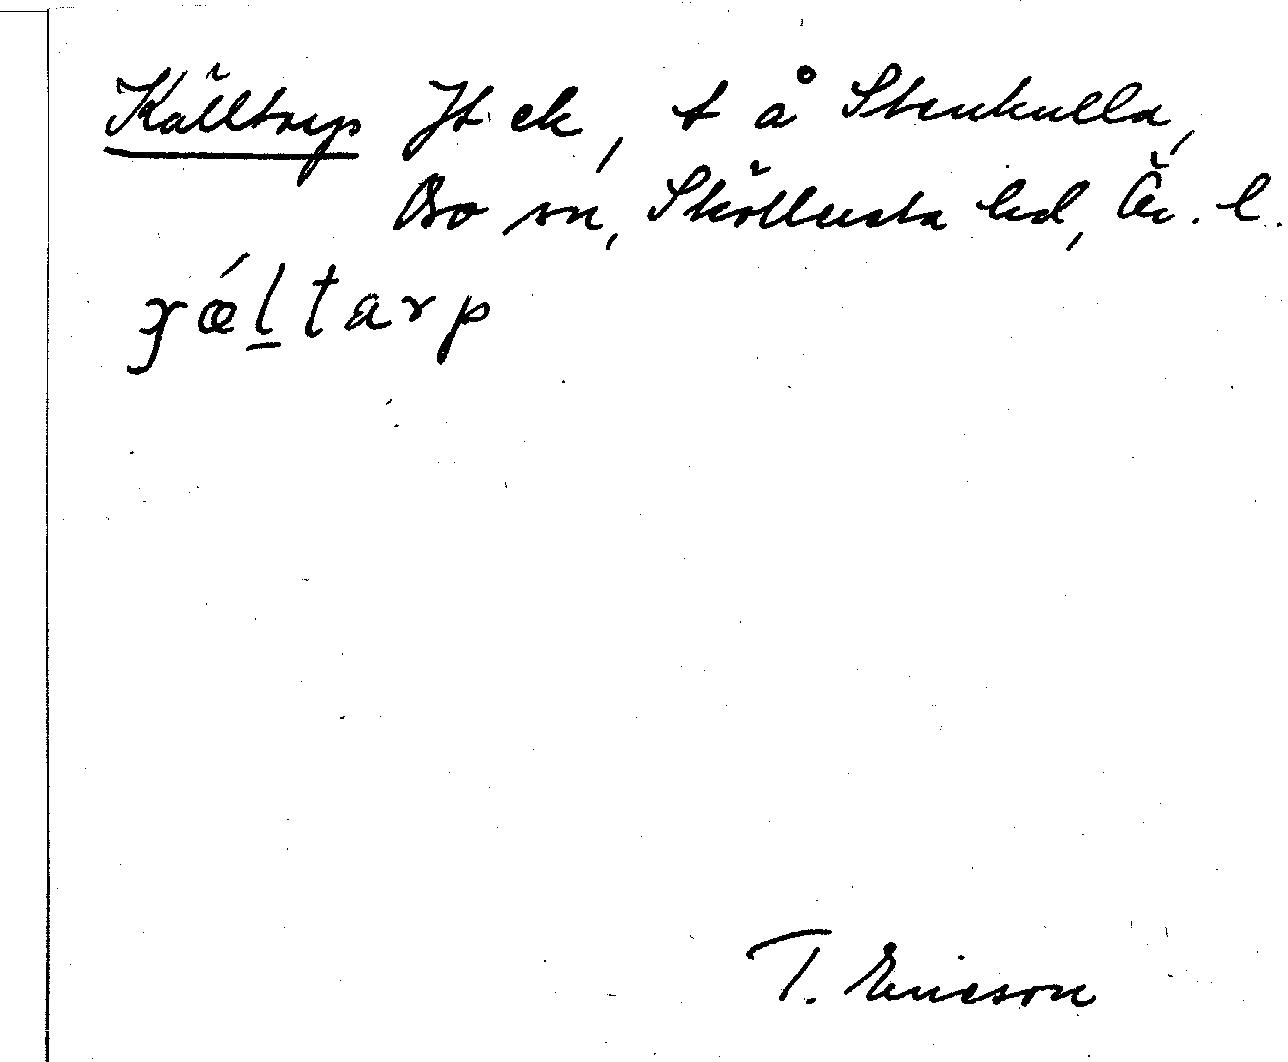 Källtorp Jt ek, t å Stenkulla,
Bo sn, Sköllersta hd, Ör. l.
ɣǽltarp
T. Ericson